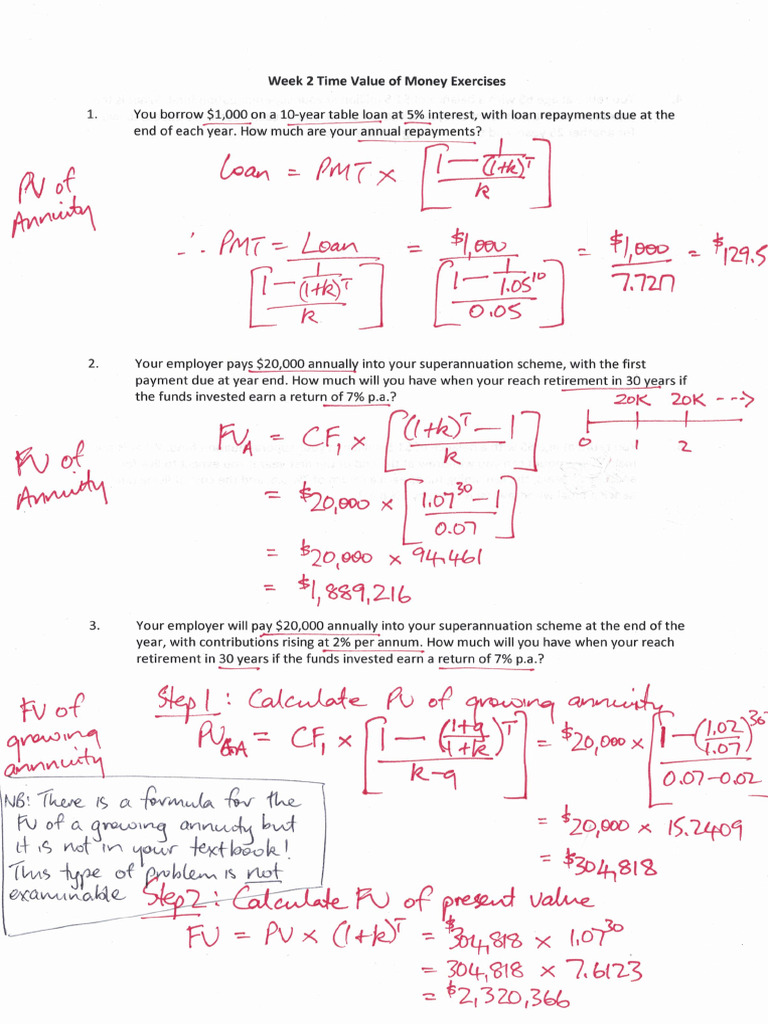 Week 2 Time Value of Money Exercises
1. You borrow $1,000 on a 10-year table loan at 5% interest, with loan repayments due at the
end of each year. How much are your annual repayments?
PV of
Annuity
Loan = PMT × [(1 − 1/(1+k)^T)/k]
∴ PMT = Loan/[(1 − 1/(1+k)^T)/k] = $1,000/[(1 − 1/1.05^10)/0.05] = $1,000/7.727 = $129.5
2. Your employer pays $20,000 annually into your superannuation scheme, with the first
payment due at year end. How much will you have when your reach retirement in 30 years if
the funds invested earn a return of 7% p.a.?
20K 20K --->
0 1 2
FV of
Annuity
FV_A = CF_1 × [((1+k)^T − 1)/k]
= $20,000 × [(1.07^30 − 1)/0.07]
= $20,000 × 94.461
= $1,889,216
3. Your employer will pay $20,000 annually into your superannuation scheme at the end of the
year, with contributions rising at 2% per annum. How much will you have when your reach
retirement in 30 years if the funds invested earn a return of 7% p.a.?
FV of
growing
annnuity
Step 1: Calculate PV of growing annuity
PV_GA = CF_1 × [(1 − ((1+g)/(1+k))^T)/(k-g)] = $20,000 × [(1 − (1.02/1.07)^30)/(0.07-0.02)]
= $20,000 × 15.2409
= $304,818
NB! There is a formula for the
FV of a growing annuity but
it is not in your textbook!
This type of problem is not
examinable
Step 2: Calculate FV of present value
FV = PV × (1+k)^T = $304,818 × 1.07^30
= 304,818 × 7.6123
= $2,320,366